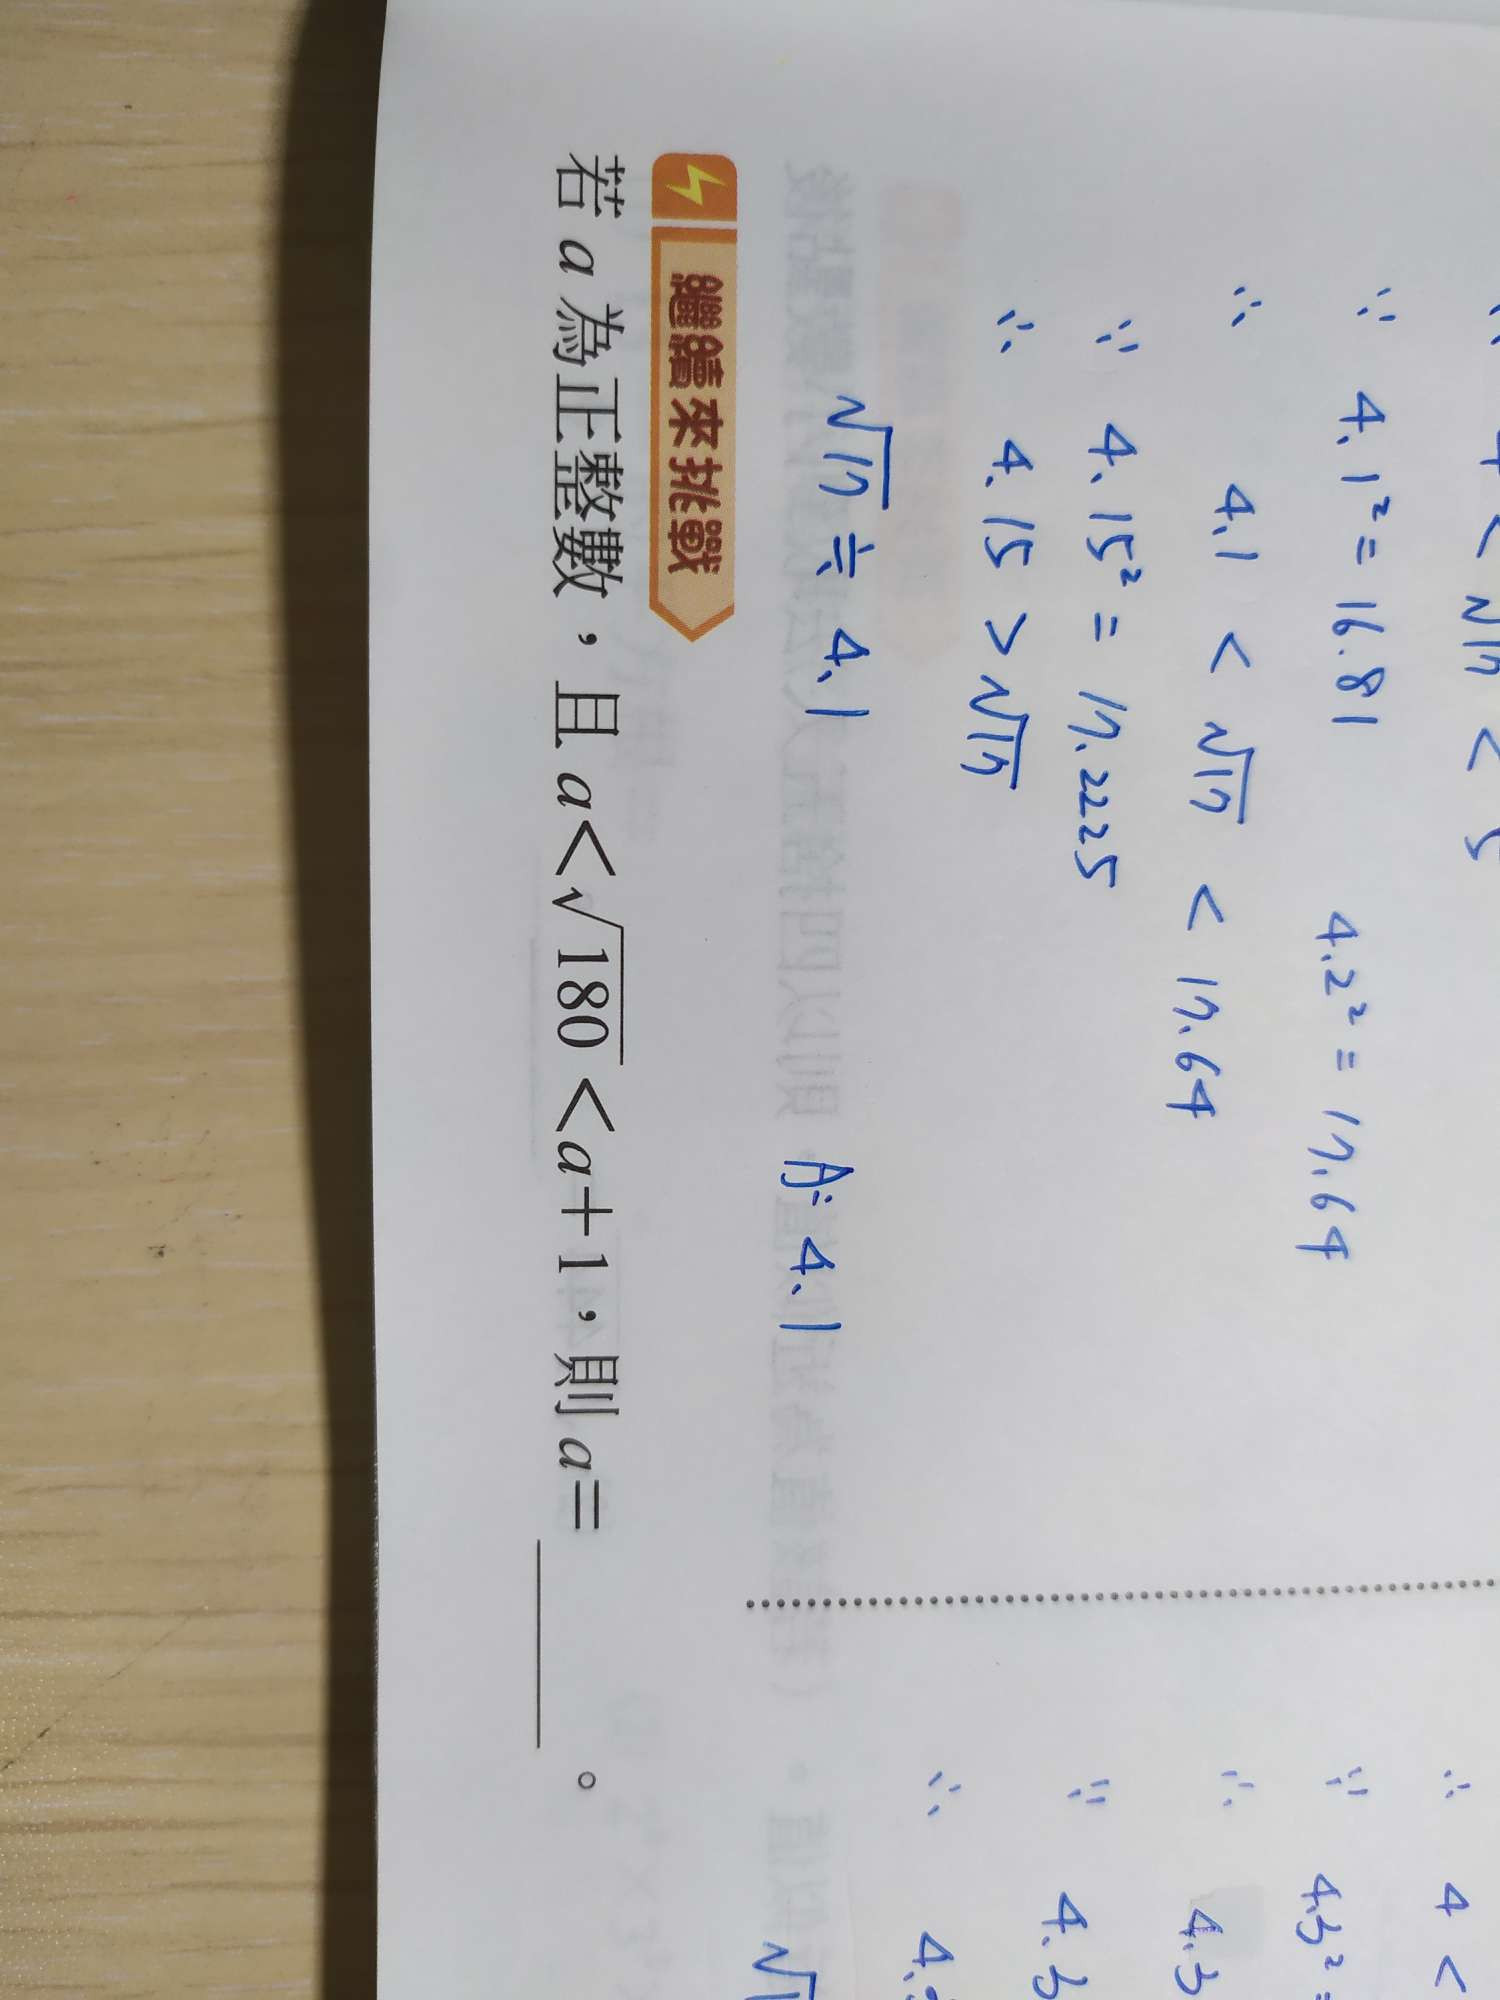 4 < √17 < 5
∵ 4.1² = 16.81 4.2² = 17.64
∴ 4.1 < √17 < 17.64
∵ 4.15² = 17.2225
∴ 4.15 > √17
√17 ≒ 4.1
A: 4.1
繼續來挑戰
若 a 為正整數，且 a<√180<a+1，則 a=＿＿＿。
∴ 4 <
∵ 4.3² =
∴ 4.3
∵ 4.3
∴ 4.